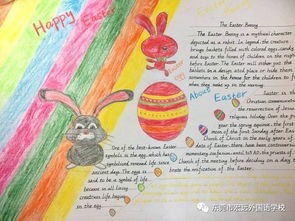 Happy Easter
The Easter Bunny
The Easter Bunny is a mythical character
depicted as a rabbit. In legend, the creature
brings baskets filled with colored eggs, candy
and toys to the homes of children on the night
before Easter. The Easter will either put the
baskets in a place or hide them
somewhere in the house for the children to find
when they wake up in the morning.
About Easter
Easter is the
Christian
the resurrection of Jesus
religious holiday. Over the
year the spring equinox, the first
moon of the first Sunday after
Church of Christ in the early years of
date of Easter, there have been controversy
Church of the meeting before deciding on a day
brate the unification of the Easter.
One of the best-known Easter
symbols is the egg, which has
symbolized renewed life since
ancient days. The egg is
said to be a symbol of life
because in all living
creatures life begins
in the egg.
东莞市宏远外国语学校